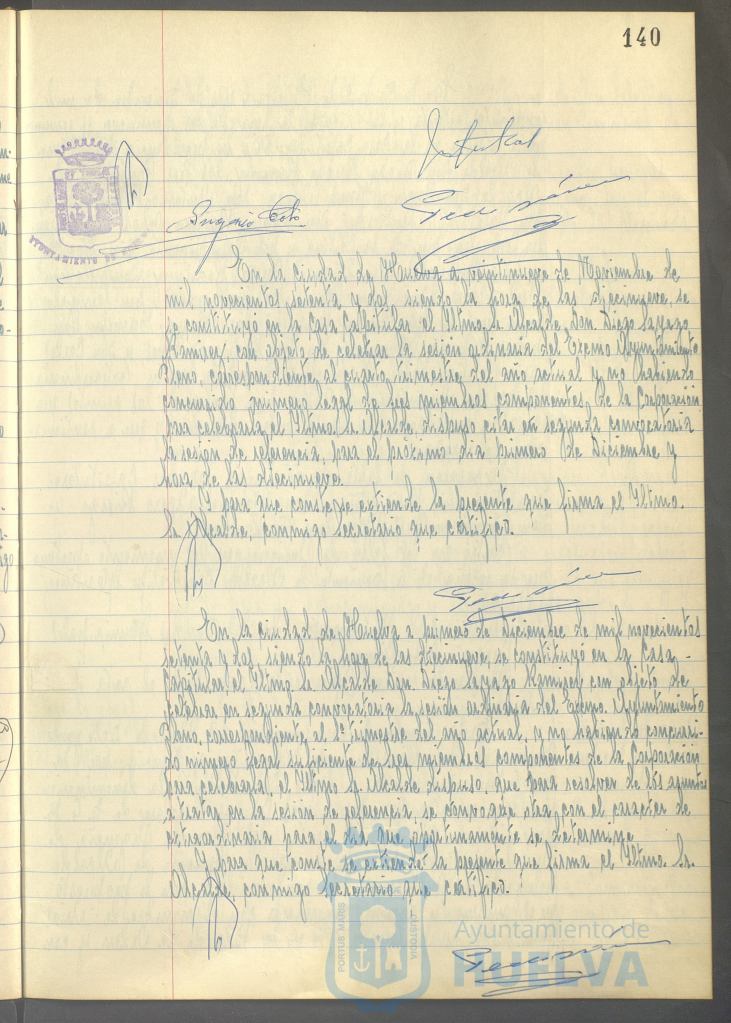 140
AYUNTAMIENTO DE
Eugenio
En la ciudad de Huelva a veintinueve de Noviembre de
mil novecientos setenta y dos siendo la hora de las diecinueve, se
se constituyó en la Casa Capitular el Iltmo. Sr. Alcalde, Don Diego Sayago
Ramirez, con objeto de celebrar la sesión ordinaria del Excmo Ayuntamiento
Pleno, correspondiente al cuarto trimestre del año actual y no habiendo
concurrido número legal de sres miembros componentes, de la Corporación
para celebrarla, el Iltmo. Sr. Alcalde dispuso citar en segunda convocatoria
la sesión de referencia, para el próximo dia primero de Diciembre y
hora de las diecinueve.
Y para que conste se extiende la presente que firma el Iltmo.
Sr. Alcalde, conmigo Secretario que certifico.
En la ciudad de Huelva a primero de diciembre de mil novecientos
setenta y dos siendo la hora de las diecinueve, se constituyó en la Casa
Capitular el Iltmo Sr Alcalde Don Diego Sayago Ramirez con objeto de
celebrar en segunda convocatoria la sesión ordinaria del Excmo. Ayuntamiento
Pleno, correspondiente al trimestre del año actual, y no habiendo concurri-
do número legal suficiente de sres miembros componentes de la Corporación
para celebrarla, el Iltmo Sr Alcalde dispuso, que para resolver de los asuntos
a tratar en la sesión de referencia, se convoque otra con el caracter de
extraordinaria para el dia que oportunamente se determine
Y para que conste se extiende la presente que firma el Iltmo. Sr.
Alcalde, conmigo Secretario que certifico.
PORTUS MARIS
CUSTODIA
Ayuntamiento de
HUELVA